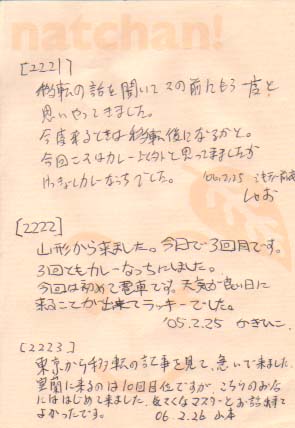 natchan!
[2221]
移転の話を聞いてその前にもう一度と
思いやってきました。
今度来るときは移転後になるかと。
今回こそはカレー以外と思ってましたが
けっきょくカレーなっちでした。 '06.2.25
しゃお
[2222]
山形から来ました。今日で3回目です。
3回ともカレーなっちにしました。
今回は初めて電車です。天気が良い日に
来ることが出来てラッキーでした。
'05.2.25 かぎひこ
[2223]
東京から移転の記事を見て、急いで来ました。
室蘭に来るのは10回目位ですが、こちらのお店
にははじめて来ました。 マスターとお話出来て
よかったです。 06 2.26 山本